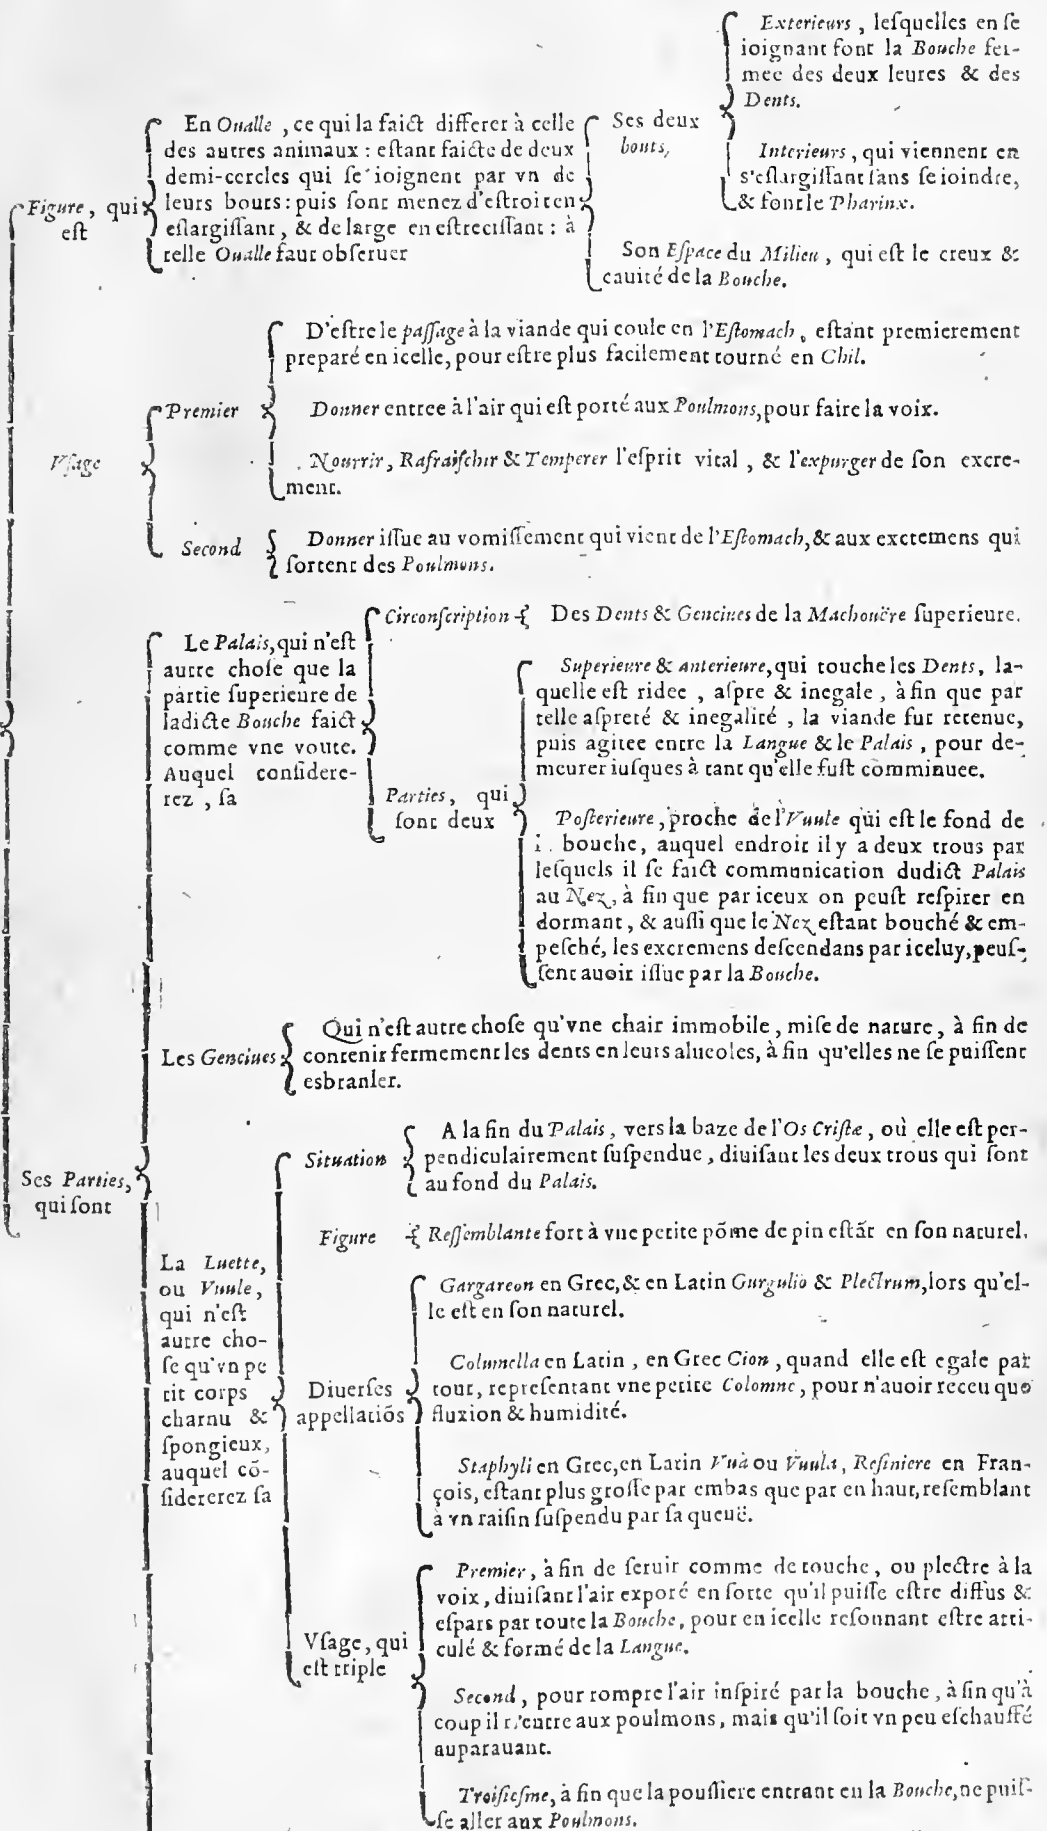 Exterieurs, leſquelles en ſe
ioignant font la Bouche fer-
mee des deux leures & des
Dents.
En Oualle, ce qui la faict differer à celle
des autres animaux : eſtant faicte de deux
demi-cercles qui ſe ioignent par vn de
leurs bouts : puis ſont menez d'eſtroit en
eſlargiſſant, & de large en eſtreciſſant : à
telle Oualle faut obſeruer
Figure, qui
eſt
Ses deux
bouts,
Interieurs, qui viennent en
s'eſlargiſſant ſans ſe ioindre,
& font le Pharinx.
Son Eſpace du Milieu, qui eſt le creux &
cauité de la Bouche.
Vſage
Premier
D'eſtre le paſſage à la viande qui coule en l'Eſtomach, eſtant premierement
preparé en icelle, pour eſtre plus facilement tourné en Chil.
Donner entree à l'air qui eſt porté aux Poulmons, pour faire la voix.
Nourrir, Rafraiſchir & Temperer l'eſprit vital, & l'expurger de ſon excre-
ment.
Second
Donner iſſue au vomiſſement qui vient de l'Eſtomach, & aux excremens qui
ſortent des Poulmons.
Ses Parties,
qui ſont
Le Palais, qui n'eſt
autre choſe que la
partie ſuperieure de
ladicte Bouche faict
comme vne voute.
Auquel conſidere-
rez, ſa
Circonſcription
Des Dents & Genciues de la Machouëre ſuperieure.
Parties, qui
ſont deux
Superieure & anterieure, qui touche les Dents, la-
quelle eſt ridee, aſpre & inegale, à fin que par
telle aſpreté & inegalité, la viande fut retenue,
puis agitee entre la Langue & le Palais, pour de-
meurer iuſques à tant qu'elle fuſt comminuee.
Poſterieure, proche de l'Vuule qui eſt le fond de
bouche, auquel endroit il y a deux trous par
leſquels il ſe faict communication dudict Palais
au Nez, à fin que par iceux on peuſt reſpirer en
dormant, & auſſi que le Nez eſtant bouché & em-
peſché, les excremens deſcendans par iceluy, peuſ-
ſent auoir iſſue par la Bouche.
Les Genciues
Qui n'eſt autre choſe qu'vne chair immobile, miſe de nature, à fin de
contenir fermement les dents en leurs alueoles, à fin qu'elles ne ſe puiſſent
esbranler.
La Luette,
ou Vuule,
qui n'eſt
autre cho-
ſe qu'vn pe
tit corps
charnu &
ſpongieux,
auquel cõ-
ſidererez ſa
Situation
A la fin du Palais, vers la baze de l'Os Criſtæ, où elle eſt per-
pendiculairement ſuſpendue, diuiſant les deux trous qui ſont
au fond du Palais.
Figure
Reſſemblante fort à vne petite põme de pin eſtãt en ſon naturel.
Diuerſes
appellatiõs
Gargareon en Grec, & en Latin Gurgulio & Plectrum, lors qu'el-
le eſt en ſon naturel.
Columella en Latin, en Grec Cion, quand elle eſt egale par
tout, repreſentant vne petite Colomne, pour n'auoir receu que
fluxion & humidité.
Staphyli en Grec, en Latin Vuà ou Vuula, Reſiniere en Fran-
çois, eſtant plus groſſe par embas que par en haut, reſemblant
à vn raiſin ſuſpendu par ſa queuë.
Vſage, qui
eſt triple
Premier, à fin de ſeruir comme de touche, ou plectre à la
voix, diuiſant l'air exporé en ſorte qu'il puiſſe eſtre diffus &
eſpars par toute la Bouche, pour en icelle reſonnant eſtre arti-
culé & formé de la Langue.
Second, pour rompre l'air inſpiré par la bouche, à fin qu'à
coup il n'entre aux poulmons, mais qu'il ſoit vn peu eſchauffé
auparauant.
Troiſieſme, à fin que la pouſſiere entrant en la Bouche, ne puiſ-
ſe aller aux Poulmons.